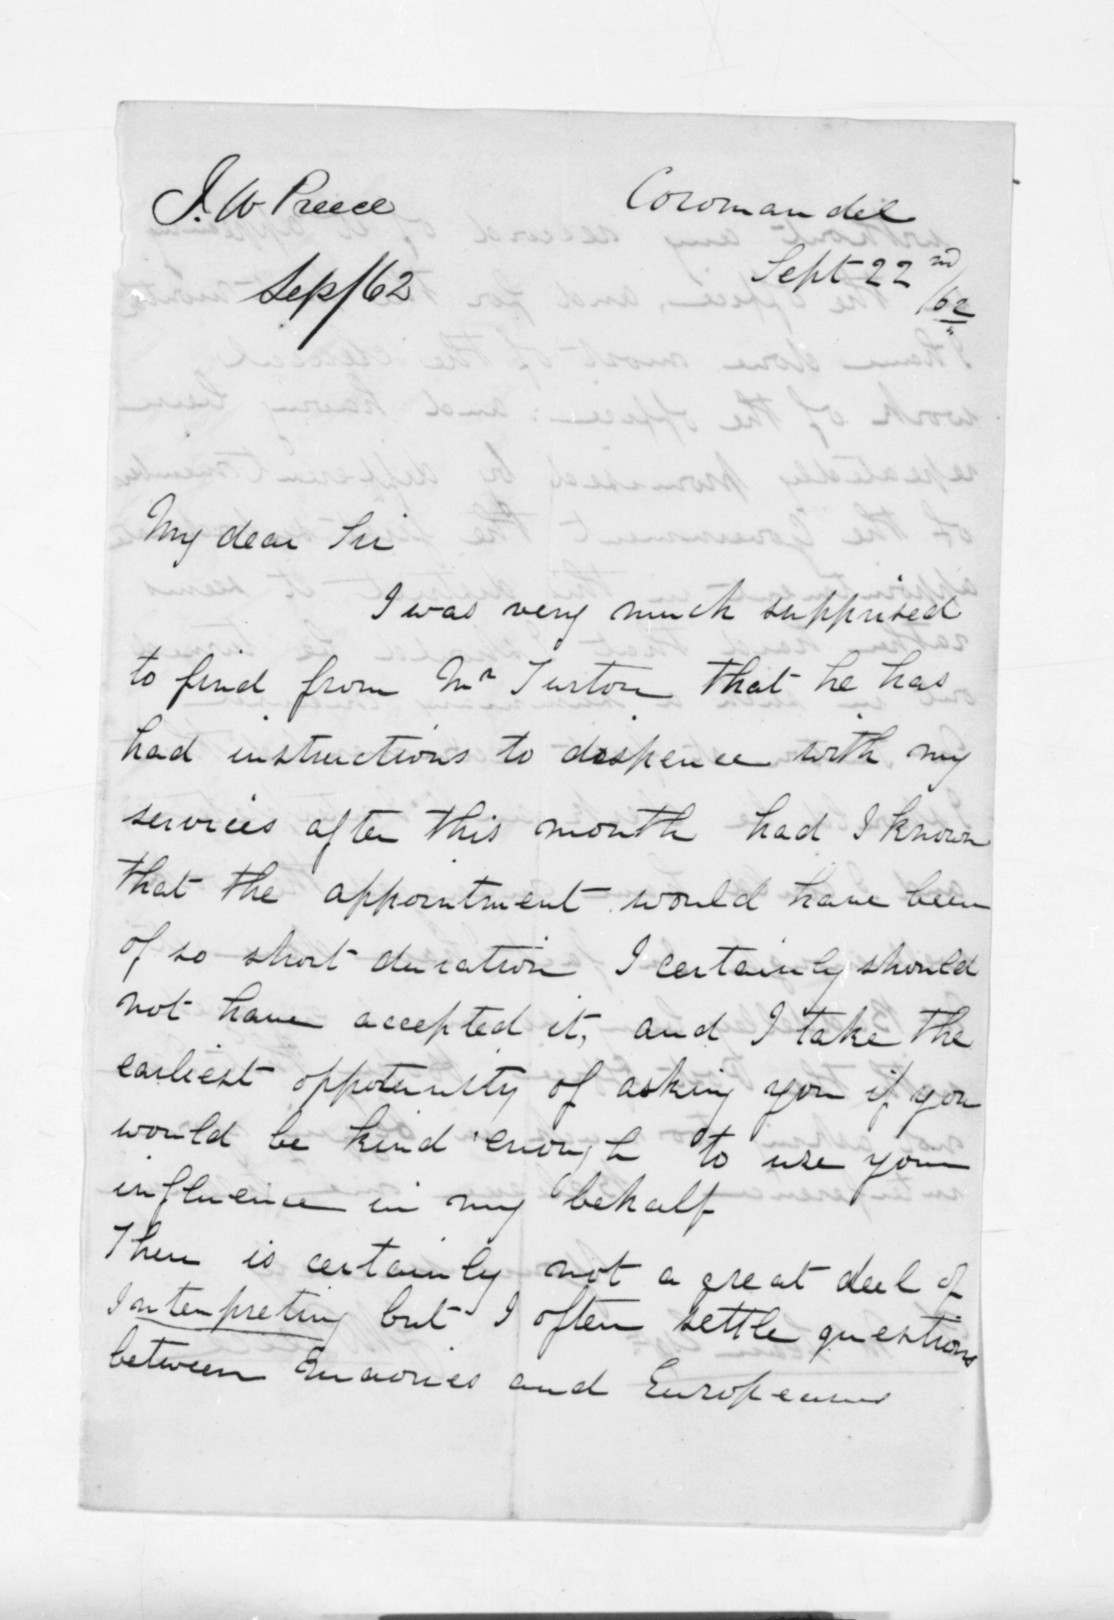 J. W Preece
Sep/62
Coromandel
Sept 22nd/62
My dear Sir
I was very much supprised
to find from Mr Turton that he has
had instructions to dispence with my
services after this month had I known
that the appointment would have been
of so short duration I certainly should
not have accepted it, and I take the
earliest oppotunity of asking you if you
would be kind enough to use your
influence in my behalf
There is certainly not a great deel of
Interpreting but I often settle questions
between Maories and Europeans